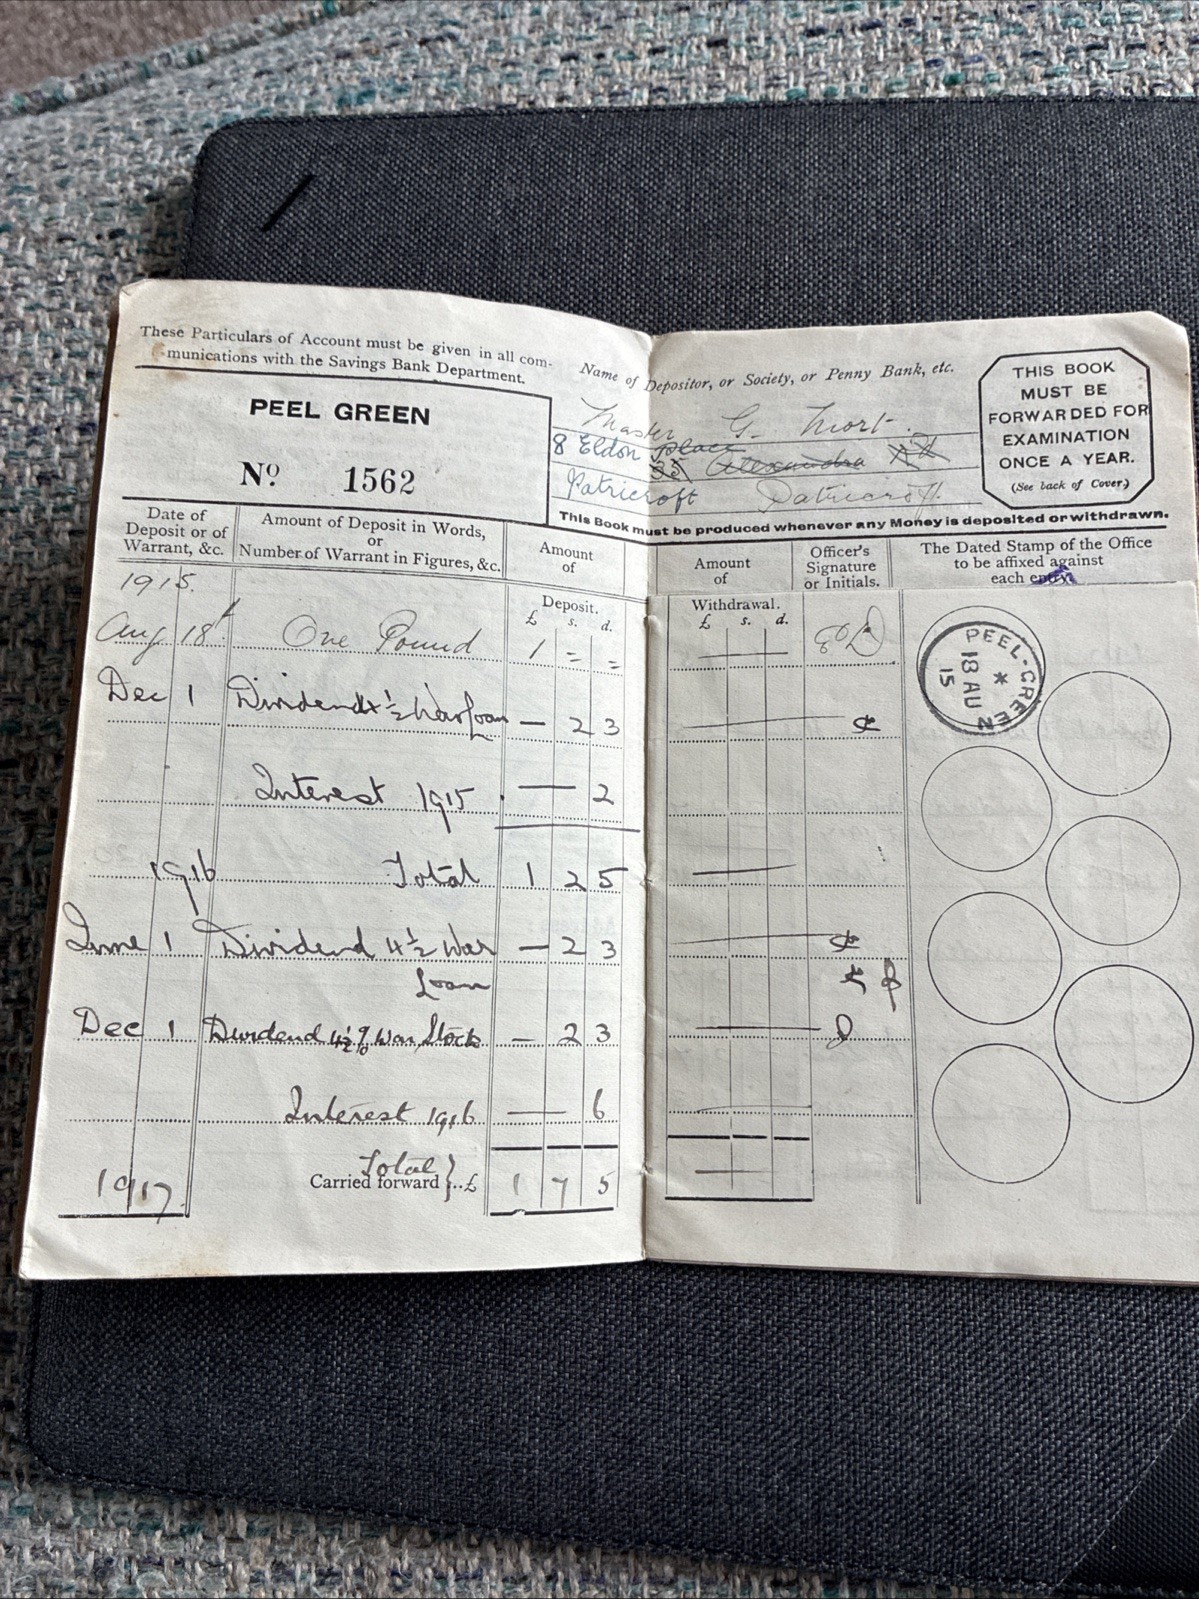 These Particulars of Account must be given in all com-
munications with the Savings Bank Department.
PEEL GREEN
No. 1562
Name of Depositor, or Society, or Penny Bank, etc.
Master G. Mort.
8 Eldon place 35 Alexandra Rd
Patricroft Patricroft.
THIS BOOK
MUST BE
FORWARDED FOR
EXAMINATION
ONCE A YEAR.
(See back of Cover.)
This Book must be produced whenever any Money is deposited or withdrawn.
Date of
Deposit or of
Warrant, &c.
Amount of Deposit in Words,
or
Number of Warrant in Figures, &c.
Amount
of
Deposit.
£ s. d.
Amount
of
Withdrawal.
£ s. d.
Officer's
Signature
or Initials.
The Dated Stamp of the Office
to be affixed against
each entry.
1915.
Aug 18t One Pound 1 = =
PEEL-GREEN
*
18 AU
15
Dec 1 Dividend 4½ War Loan — 2 3
Interest 1915 — 2
1916 Total 1 2 5
June 1 Dividend 4½ War — 2 3
Loan
Dec 1 Dividend 4½% War Stock — 2 3
Interest 1916 — 6
Total
1917 Carried forward }..£ 1 7 5